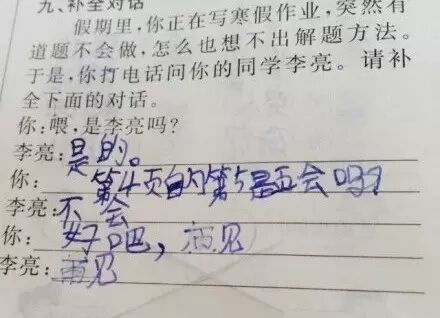 九、补全对话
假期里，你正在写寒假作业，突然有
道题不会做，怎么也想不出解题方法。
于是，你打电话问你的同学李亮。请补
全下面的对话。
你：喂，是李亮吗？
李亮：是的。
你：第4页的第5题会吗？
李亮：不会
你：好吧，再见
李亮：再见